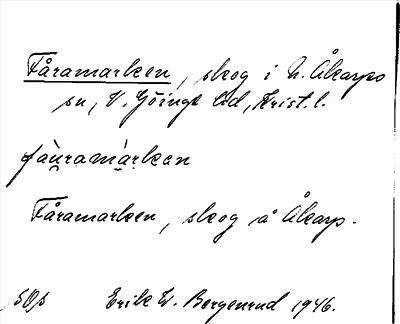 Fåramarken, skog i N. Åkarps
sn, V. Göinge hd, Krist. l.
fåu̯ramàrkan
Fåramarken, skog å Åkarp.
Erik W. Bergenrud 1946.